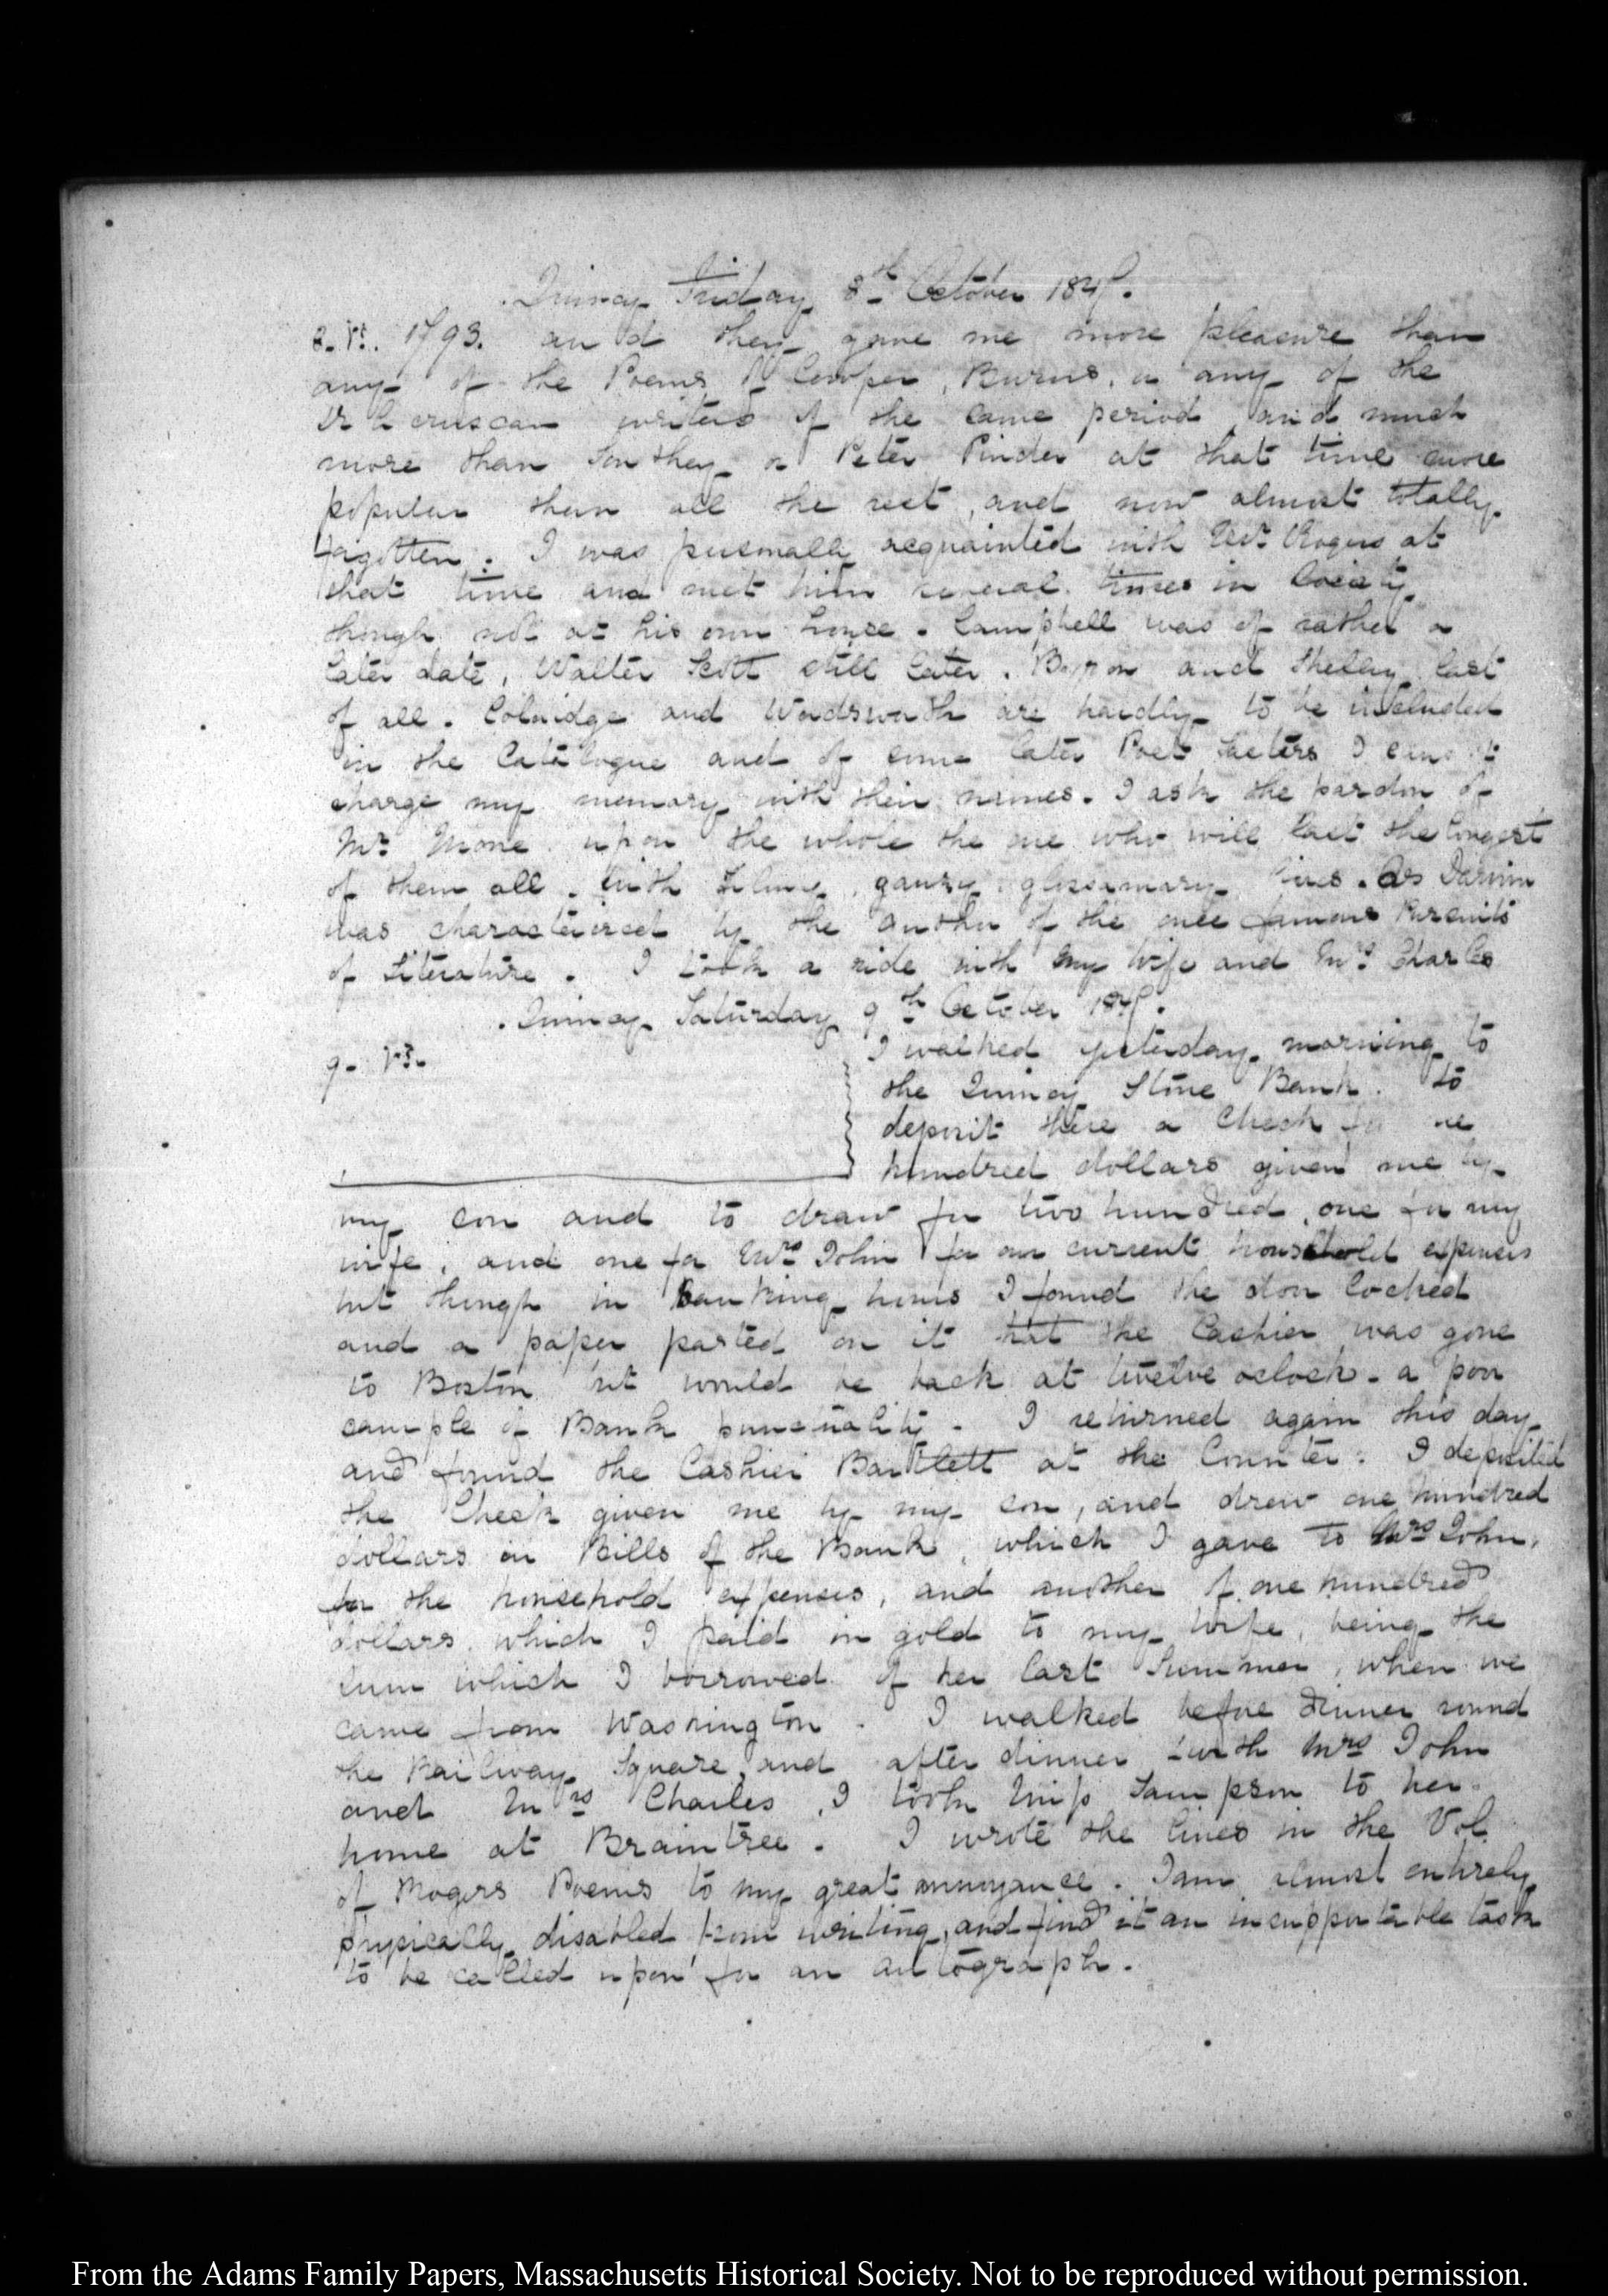 Quincy Friday 8th October 1847.
8. VI. 1793. and they gave me more pleasure than
any of the Poems of Cowper, Burns, or any of the
cruscan writers of the same period and much
more than Southey or Peter Pindar at that time more
popular than all the rest, and now almost totally
forgotten. I was personally acquainted with Mr. Rogers at
that time and met him several times in Society
though not at his own house. Campbell was of rather a
later date, Walter Scott still later. Byron and Shelley last
of all. Coleridge and Wordsworth are hardly to be included
in the Catalogue and of some later Poetasters I cannot
charge my memory with their names. I ask the pardon of
Mr. Moore upon the whole the one who will last the longest
of them all. with filmy, gauzy, gossamery lines. As Darwin
was characterised by the author of the once famous Pursuits
of Literature. I took a ride with my wife and Mrs. Charles
Quincy Saturday 9th October 1847.
9. VI.
I walked yesterday morning to
the Quincy Stone Bank. to
deposit there a Check for one
hundred dollars given me by
my son and to draw for two hundred, one for my
wife, and one for Mrs. John for our current household expenses
but though in Banking hours I found the door locked
and a paper pasted on it that the Cashier was gone
to Boston but would be back at twelve oclock. a poor
sample of Bank punctuality. I returned again this day
and found the Cashier Bartlett at the Counter. I deposited
the Check given me by my son, and drew one hundred
dollars in Bills of the Bank, which I gave to Mrs John,
for the household expenses, and another of one hundred
dollars which I paid in gold to my wife, being the
sum which I borrowed of her last Summer, when we
came from Washington. I walked before dinner round
the Railway Square, and after dinner with Mrs John
and Mrs Charles, I took Miss Sampson to her
home at Braintree. I wrote the lines in the Vol.
of Rogers Poems to my great annoyance. I am almost entirely
physically disabled from writing, and find it an insupportable task
to be called upon for an autograph.
From the Adams Family Papers, Massachusetts Historical Society. Not to be reproduced without permission.